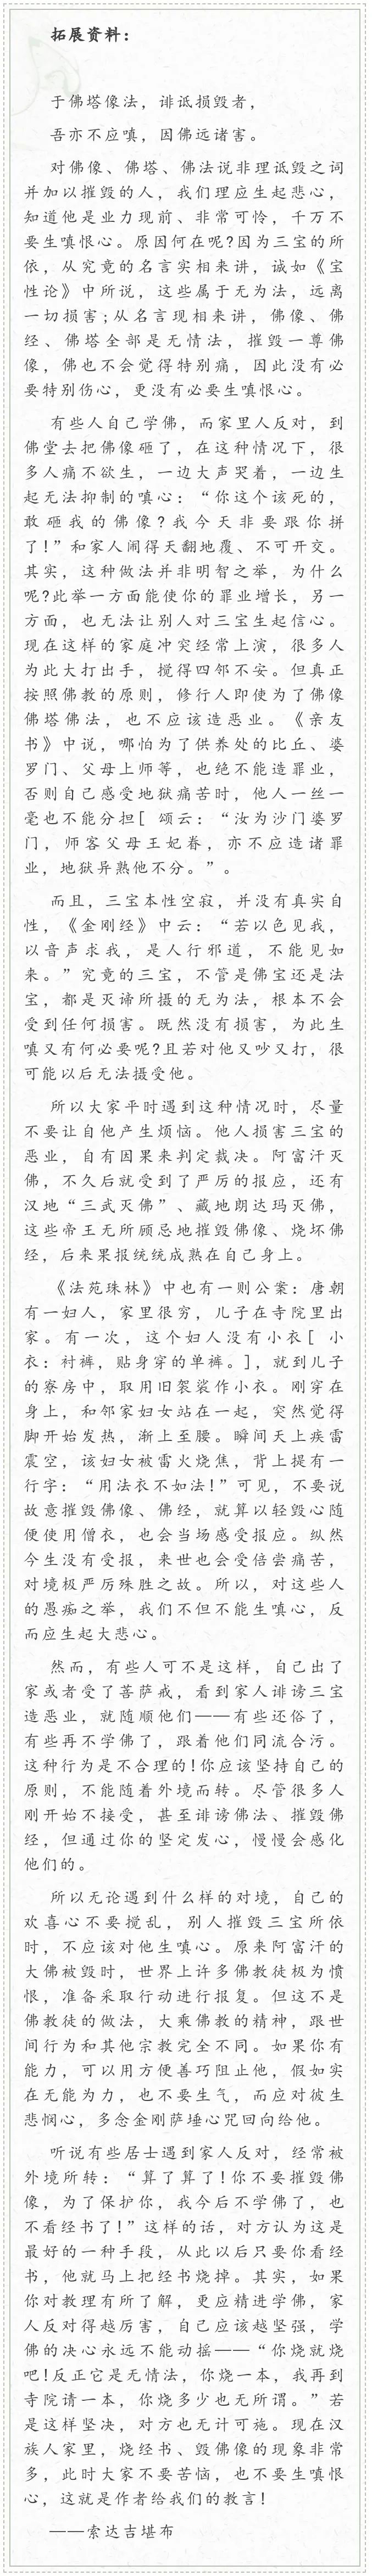 拓展资料：
于佛塔像法，诽诋损毁者，
吾亦不应嗔，因佛远诸害。
对佛像、佛塔、佛法说非理诋毁之词
并加以摧毁的人，我们理应生起悲心，
知道他是业力现前、非常可怜，千万不
要生嗔恨心。原因何在呢?因为三宝的所
依，从究竟的名言实相来讲，诚如《宝
性论》中所说，这些属于无为法，远离
一切损害;从名言现相来讲，佛像、佛
经、佛塔全部是无情法，摧毁一尊佛
像，佛也不会觉得特别痛，因此没有必
要特别伤心，更没有必要生嗔恨心。
有些人自己学佛，而家里人反对，到
佛堂去把佛像砸了，在这种情况下，很
多人痛不欲生，一边大声哭着，一边生
起无法抑制的嗔心：“你这个该死的，
敢砸我的佛像?我今天非要跟你拼
了!”和家人闹得天翻地覆、不可开交。
其实，这种做法并非明智之举，为什么
呢?此举一方面能使你的罪业增长，另一
方面，也无法让别人对三宝生起信心。
现在这样的家庭冲突经常上演，很多人
为此大打出手，搅得四邻不安。但真正
按照佛教的原则，修行人即使为了佛像
佛塔佛法，也不应该造恶业。《亲友
书》中说，哪怕为了供养处的比丘、婆
罗门、父母上师等，也绝不能造罪业，
否则自己感受地狱痛苦时，他人一丝一
毫也不能分担[ 颂云：“汝为沙门婆罗
门，师客父母王妃眷，亦不应造诸罪
业，地狱异熟他不分。”。
而且，三宝本性空寂，并没有真实自
性，《金刚经》中云：“若以色见我，
以音声求我，是人行邪道，不能见如
来。”究竟的三宝，不管是佛宝还是法
宝，都是灭谛所摄的无为法，根本不会
受到任何损害。既然没有损害，为此生
嗔又有何必要呢?且若对他又吵又打，很
可能以后无法摄受他。
所以大家平时遇到这种情况时，尽量
不要让自他产生烦恼。他人损害三宝的
恶业，自有因果来判定裁决。阿富汗灭
佛，不久后就受到了严厉的报应，还有
汉地“三武灭佛”、藏地朗达玛灭佛，
这些帝王无所顾忌地摧毁佛像、烧坏佛
经，后来果报统统成熟在自己身上。
《法苑珠林》中也有一则公案：唐朝
有一妇人，家里很穷，儿子在寺院里出
家。有一次，这个妇人没有小衣[ 小
衣：衬裤，贴身穿的单裤。]，就到儿子
的寮房中，取用旧袈裟作小衣。刚穿在
身上，和邻家妇女站在一起，突然觉得
脚开始发热，渐上至腰。瞬间天上疾雷
震空，该妇女被雷火烧焦，背上提有一
行字：“用法衣不如法!”可见，不要说
故意摧毁佛像、佛经，就算以轻毁心随
便使用僧衣，也会当场感受报应。纵然
今生没有受报，来世也会受倍尝痛苦，
对境极严厉殊胜之故。所以，对这些人
的愚痴之举，我们不但不能生嗔心，反
而应生起大悲心。
然而，有些人可不是这样，自己出了
家或者受了菩萨戒，看到家人诽谤三宝
造恶业，就随顺他们——有些还俗了，
有些再不学佛了，跟着他们同流合污。
这种行为是不合理的!你应该坚持自己的
原则，不能随着外境而转。尽管很多人
刚开始不接受，甚至诽谤佛法、摧毁佛
经，但通过你的坚定发心，慢慢会感化
他们的。
所以无论遇到什么样的对境，自己的
欢喜心不要搅乱，别人摧毁三宝所依
时，不应该对他生嗔心。原来阿富汗的
大佛被毁时，世界上许多佛教徒极为愤
恨，准备采取行动进行报复。但这不是
佛教徒的做法，大乘佛教的精神，跟世
间行为和其他宗教完全不同。如果你有
能力，可以用方便善巧阻止他，假如实
在无能为力，也不要生气，而应对彼生
悲悯心，多念金刚萨埵心咒回向给他。
听说有些居士遇到家人反对，经常被
外境所转：“算了算了!你不要摧毁佛
像，为了保护你，我今后不学佛了，也
不看经书了!”这样的话，对方认为这是
最好的一种手段，从此以后只要你看经
书，他就马上把经书烧掉。其实，如果
你对教理有所了解，更应精进学佛，家
人反对得越厉害，自己应该越坚强，学
佛的决心永远不能动摇——“你烧就烧
吧!反正它是无情法，你烧一本，我再到
寺院请一本，你烧多少也无所谓。”若
是这样坚决，对方也无计可施。现在汉
族人家里，烧经书、毁佛像的现象非常
多，此时大家不要苦恼，也不要生嗔恨
心，这就是作者给我们的教言!
——索达吉堪布